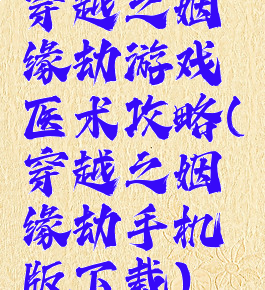 穿越之姻
缘劫游戏
医术攻略(
穿越之姻
缘劫手机
版下载)